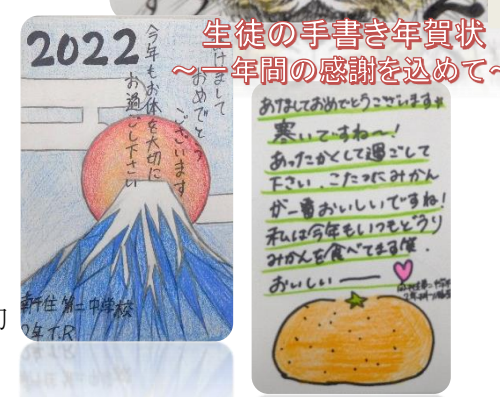 生徒の手書き年賀状
～一年間の感謝を込めて～
2022
けまして
おめでとう
ございます
今年もお体を大切に
お過ごし下さい
住第二中学校
年T.R
あけましておめでとうございます
寒いですね～!
あったかくして過ごして
下さい。こたつにみかん
が一番おいしいですね!
私は今年もいつもどうり
みかんを食べてます笑.
おいしい――